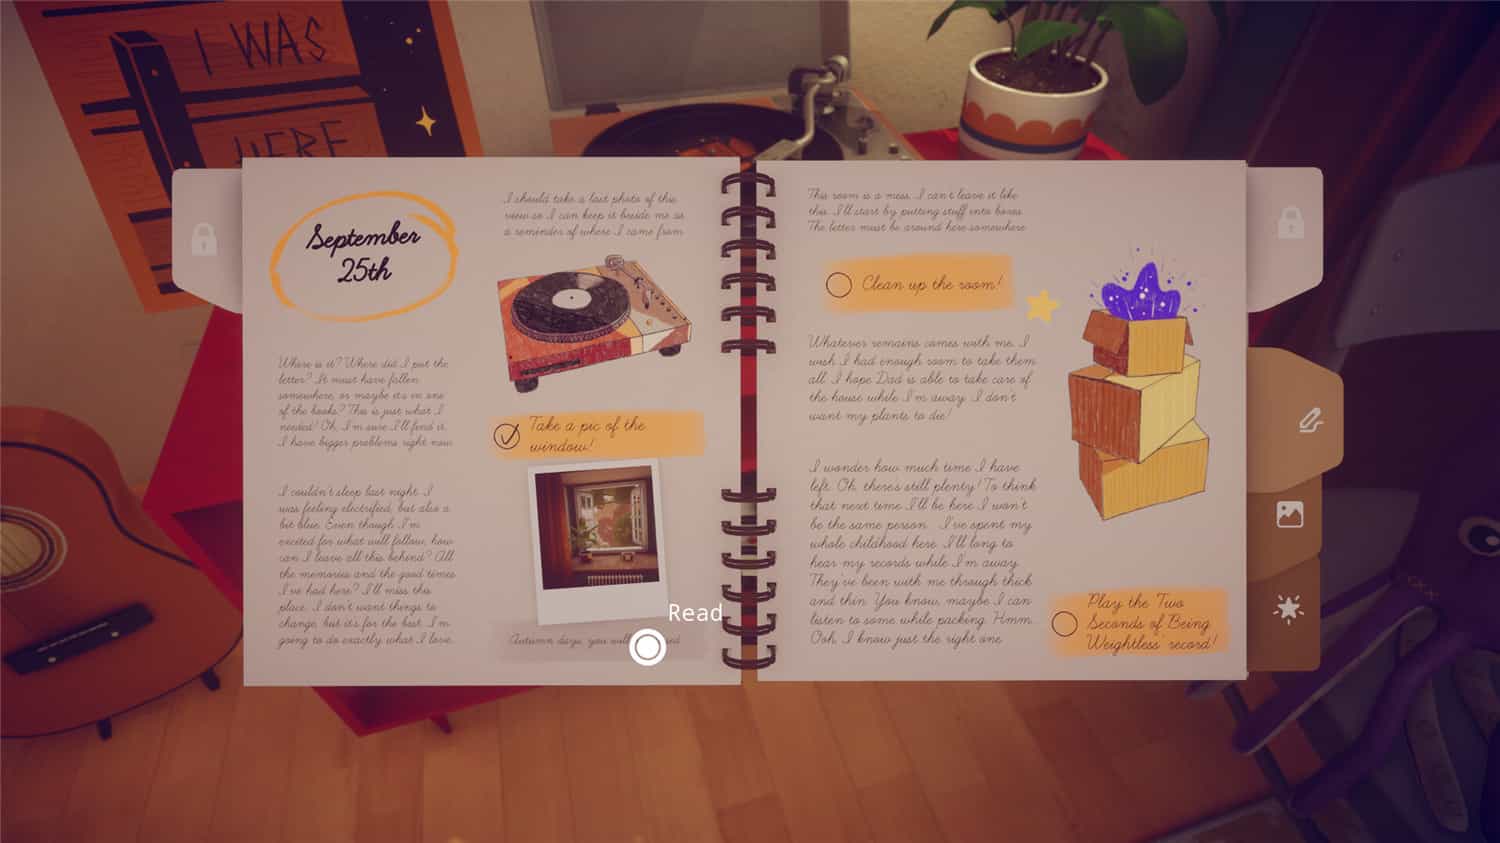 I WAS
HERE
September
25th
Where is it? Where did I put the
letter? It must have fallen
somewhere, or maybe it's in one
of the books? This is just what I
needed! Oh, I'm sure I'll find it.
I have bigger problems right now.
I couldn't sleep last night. I
was feeling electrified, but also a
bit blue. Even though I'm
excited for what will follow, how
can I leave all this behind? All
the memories and the good times
I've had here? I'll miss this
place. I don't want things to
change, but it's for the best. I'm
going to do exactly what I love.
I should take a last photo of this
view so I can keep it beside me as
a reminder of where I came from.
Take a pic of the
window!
Read
Autumn days, you will
This room is a mess. I can't leave it like
this. I'll start by putting stuff into boxes.
The letter must be around here somewhere.
Clean up the room!
Whatever remains comes with me. I
wish I had enough room to take them
all. I hope Dad is able to take care of
the house while I'm away. I don't
want my plants to die!
I wonder how much time I have
left. Oh, there's still plenty! To think
that next time I'll be here I won't
be the same person... I've spent my
whole childhood here. I'll long to
hear my records while I'm away.
They've been with me through thick
and thin. You know, maybe I can
listen to some while packing. Hmm...
Ooh, I know just the right one.
Play the 'Two
Seconds of Being
Weightless' record!